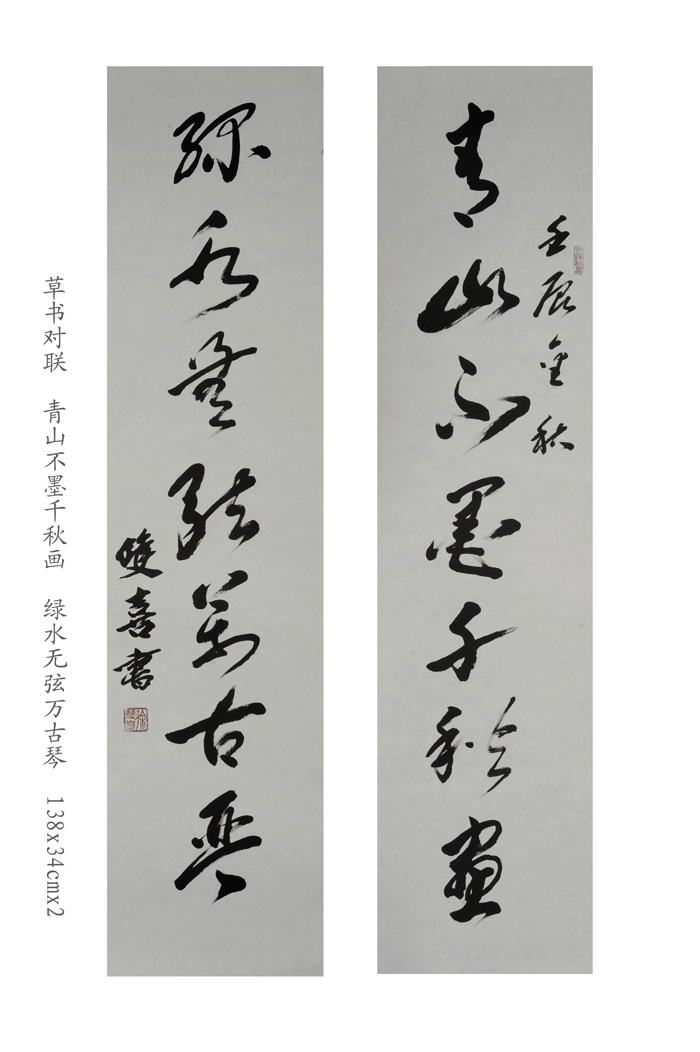 壬辰金秋
青山不墨千秋畫
緑水無弦萬古琴
雙喜書
草书对联 青山不墨千秋画 绿水无弦万古琴 138x34cmx2